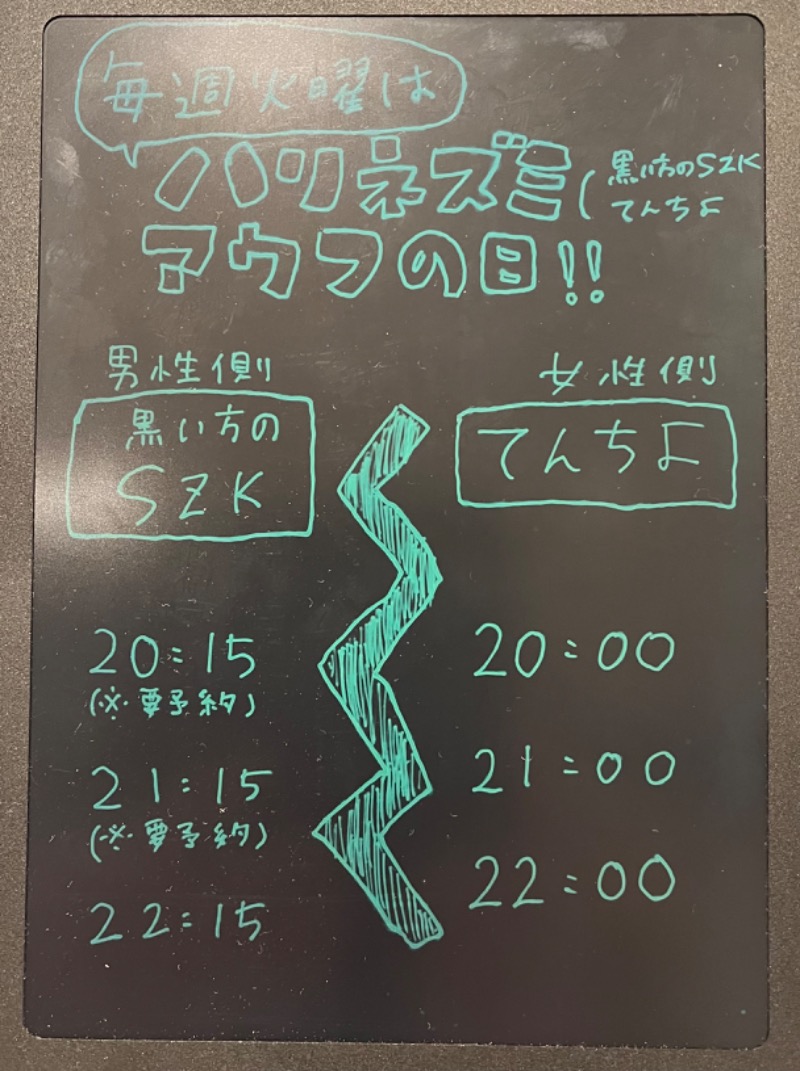 毎週火曜は
ハリネズミ(黒い方のSZK
てんちよ
アウフの日!!
男性側
黒い方の
SZK
20:15
(※要予約)
21:15
(※要予約)
22:15
女性側
てんちよ
20:00
21:00
22:00